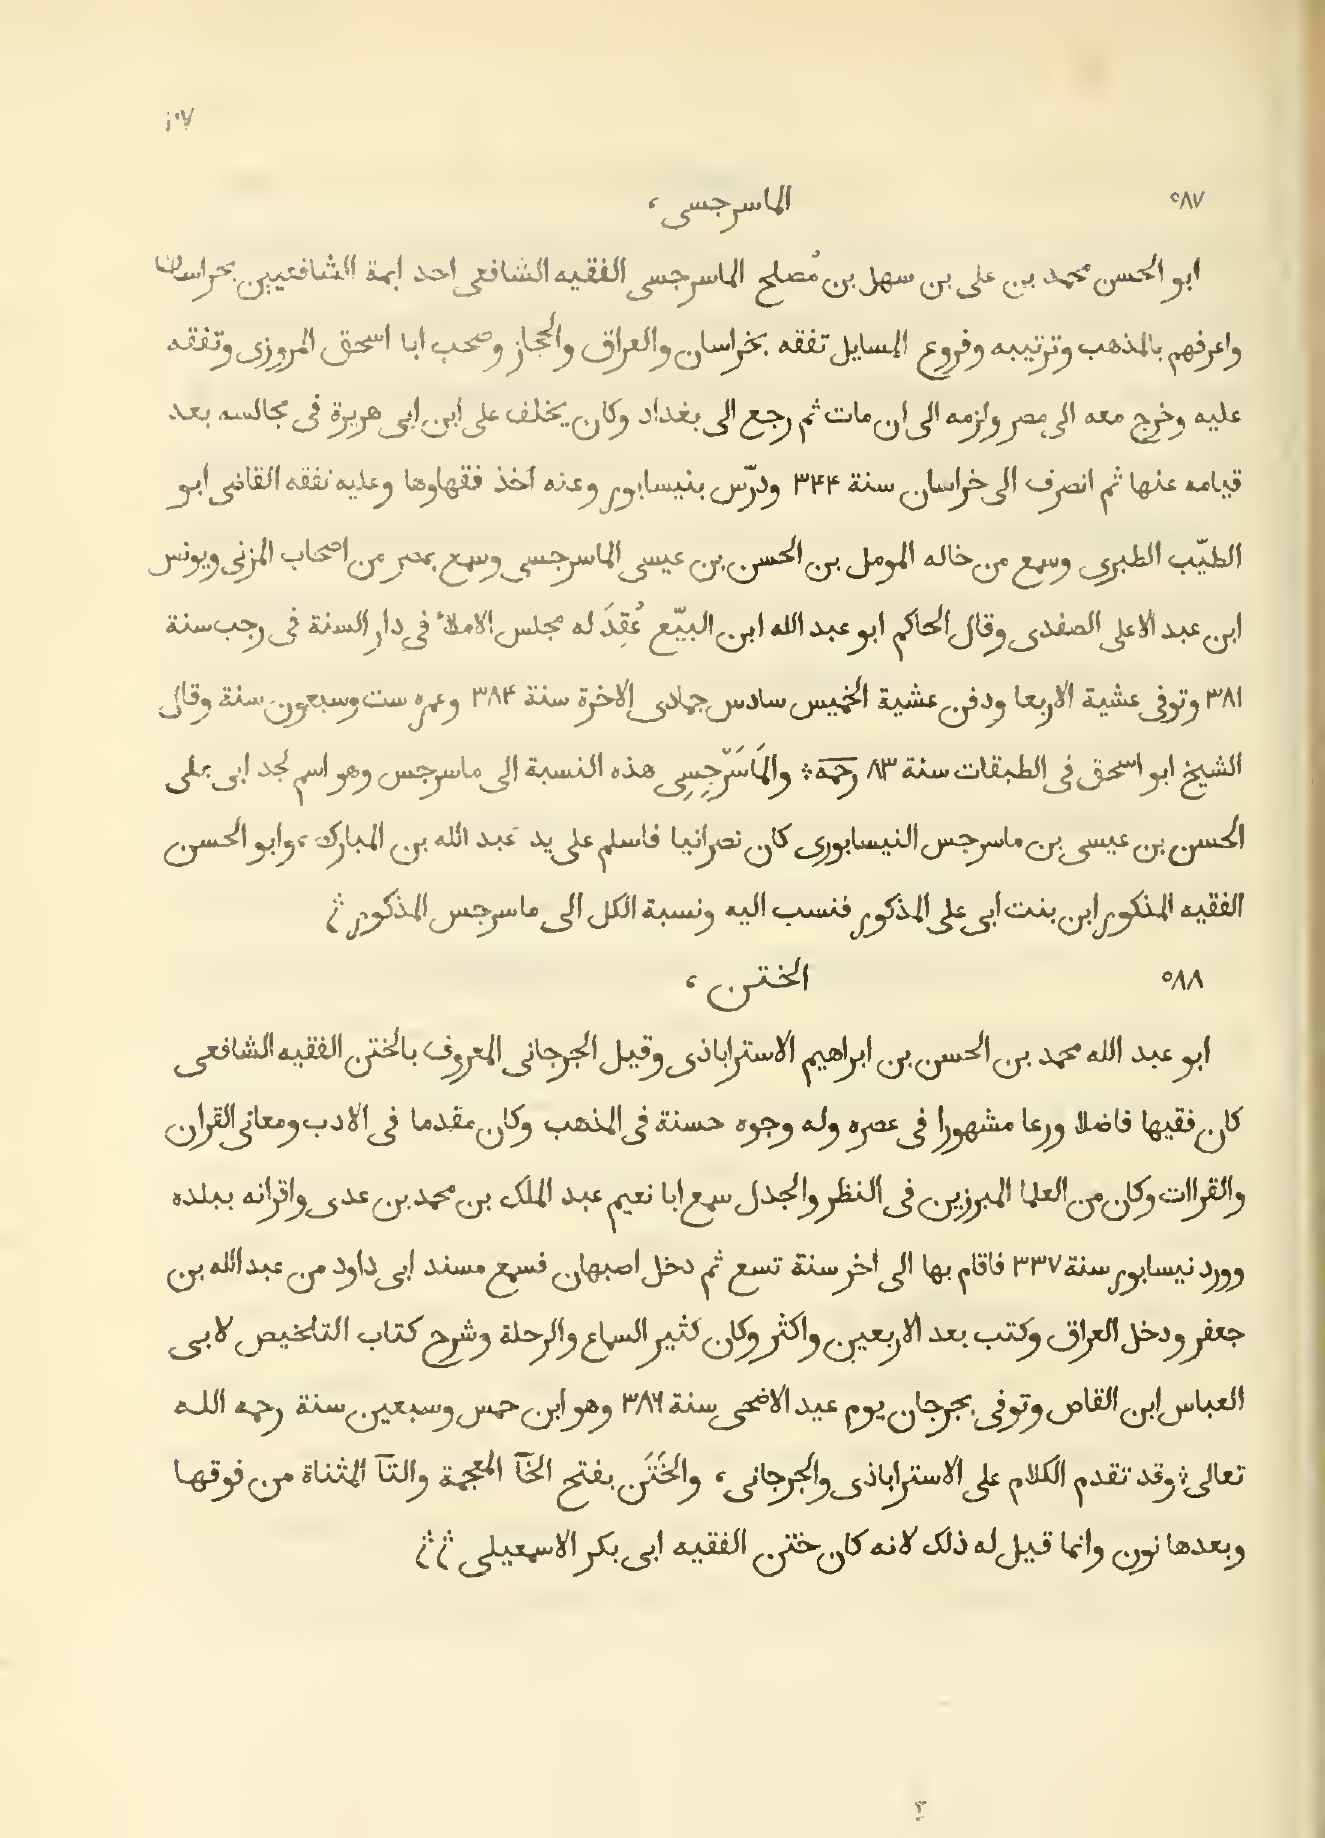 ٥٨٧ الماسرجسى ،
ابو الحسن محمد بن على بن سهل بن مُصلح الماسرجسى الفقيه الشافعى احد ايمة الشافعيين بخراسان
واعرفهم بالمذهب وترتيبه وفروع المسايل تفقه بخراسان والعراق والحجاز وصحب ابا اسحق المروزى وتفقه
عليه وخرج معه الى مصر ولزمه الى ان مات ثم رجع الى بغداد وكان يخلف على ابن ابى هريرة فى مجالسه بعد
قيامه عنها ثم انصرف الى خراسان سنة ٣٤٤ ودرّس بنيسابور وعنه اخذ فقهاوها وعليه تفقه القاضى ابو
الطيّب الطبرى وسمع من خاله المومل بن الحسن بن عيسى الماسرجسى وسمع بمصر من اصحاب المزنى ويونس
ابن عبد الاعلى الصفدى وقال الحاكم ابو عبد الله ابن البيّع عُقِدَ له مجلس الاملاء فى دار السنة فى رجب سنة
٣٨١ وتوفى عشية الاربعا ودفن عشية الخميس سادس جمادى الاخرة سنة ٣٨٤ وعمره ست وسبعون سنة وقال
الشيخ ابو اسحق فى الطبقات سنة ٨٣ رحمه ؛ والمَاسَرْجِسِى هذه النسبة الى ماسرجس وهو اسم لجد ابى على
الحسن بن عيسى بن ماسرجس النيسابورى كان نصرانيا فاسلم على يد عبد الله بن المبارك ، وابو الحسن
الفقيه المذكور ابن بنت ابى على المذكور فنسب اليه ونسبة الكل الى ماسرجس المذكور ؛
٥٨٨ الختن ،
ابو عبد الله محمد بن الحسن بن ابراهيم الاستراباذى وقيل الجرجانى المعروف بالختن الفقيه الشافعى
كان فقيها فاضلا ورعا مشهورا فى عصره وله وجوه حسنة فى المذهب وكان مقدما فى الادب ومعانى القران
والقراات وكان من العلما المبرزين فى النظر والجدل سمع ابا نعيم عبد الملك بن محمد بن عدى واقرانه ببلده
وورد نيسابور سنة ٣٣٧ فاقام بها الى اخر سنة تسع ثم دخل اصبهان فسمع مسند ابى داود من عبد الله بن
جعفر ودخل العراق وكتب بعد الاربعين واكثر وكان كثير السماع والرحلة وشرح كتاب التلخيص لابى
العباس ابن القاص وتوفى بجرجان يوم عيد الاضحى سنة ٣٨٦ وهو ابن خمس وسبعين سنة رحمه الله
تعالى ؛ وقد تقدم الكلام على الاستراباذى والجرجانى ، والخَتَن بفتح الخآ المعجمة والتآ المثناة من فوقها
وبعدها نون وانما قيل له ذلك لانه كان ختن الفقيه ابى بكر الاسمعيلى ؛ ؛